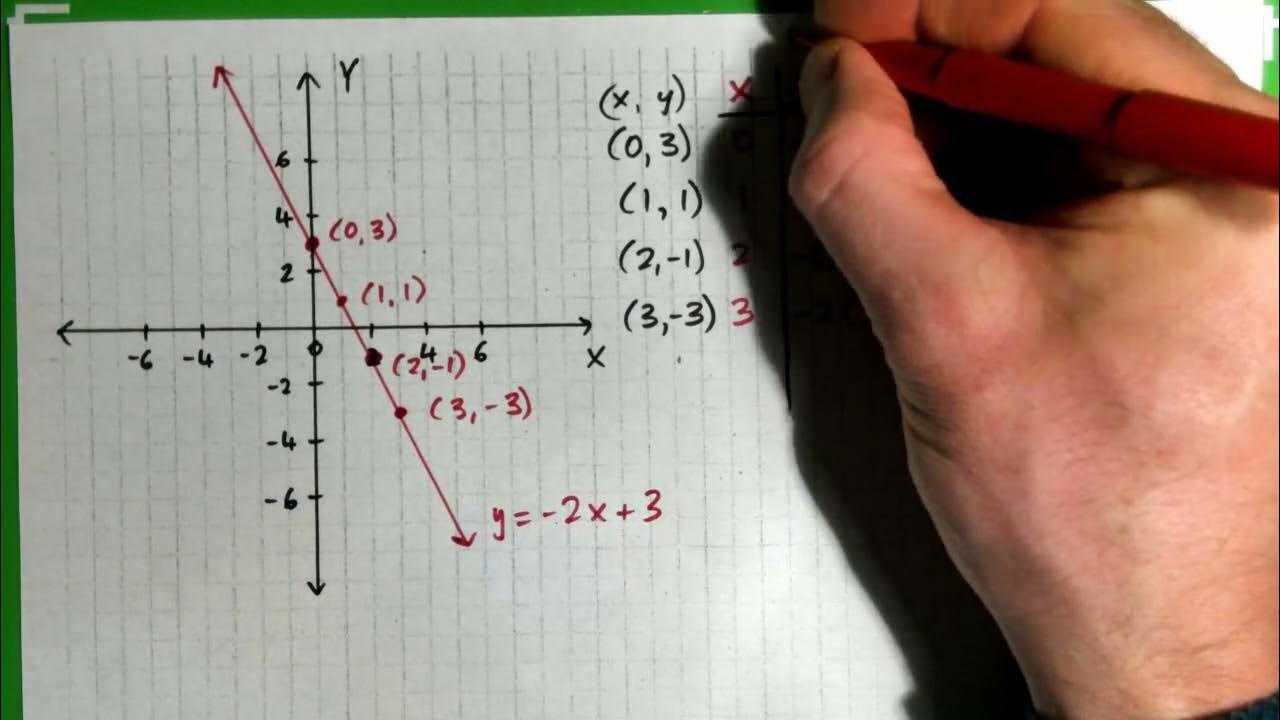 Y
6
4
(0,3)
2
(1,1)
-6 -4 -2 0 4 6 X
(2,-1)
-2
(3,-3)
-4
-6
y=-2x+3
(x, y) x
(0,3) 0
(1,1) 1
(2,-1) 2
(3,-3) 3